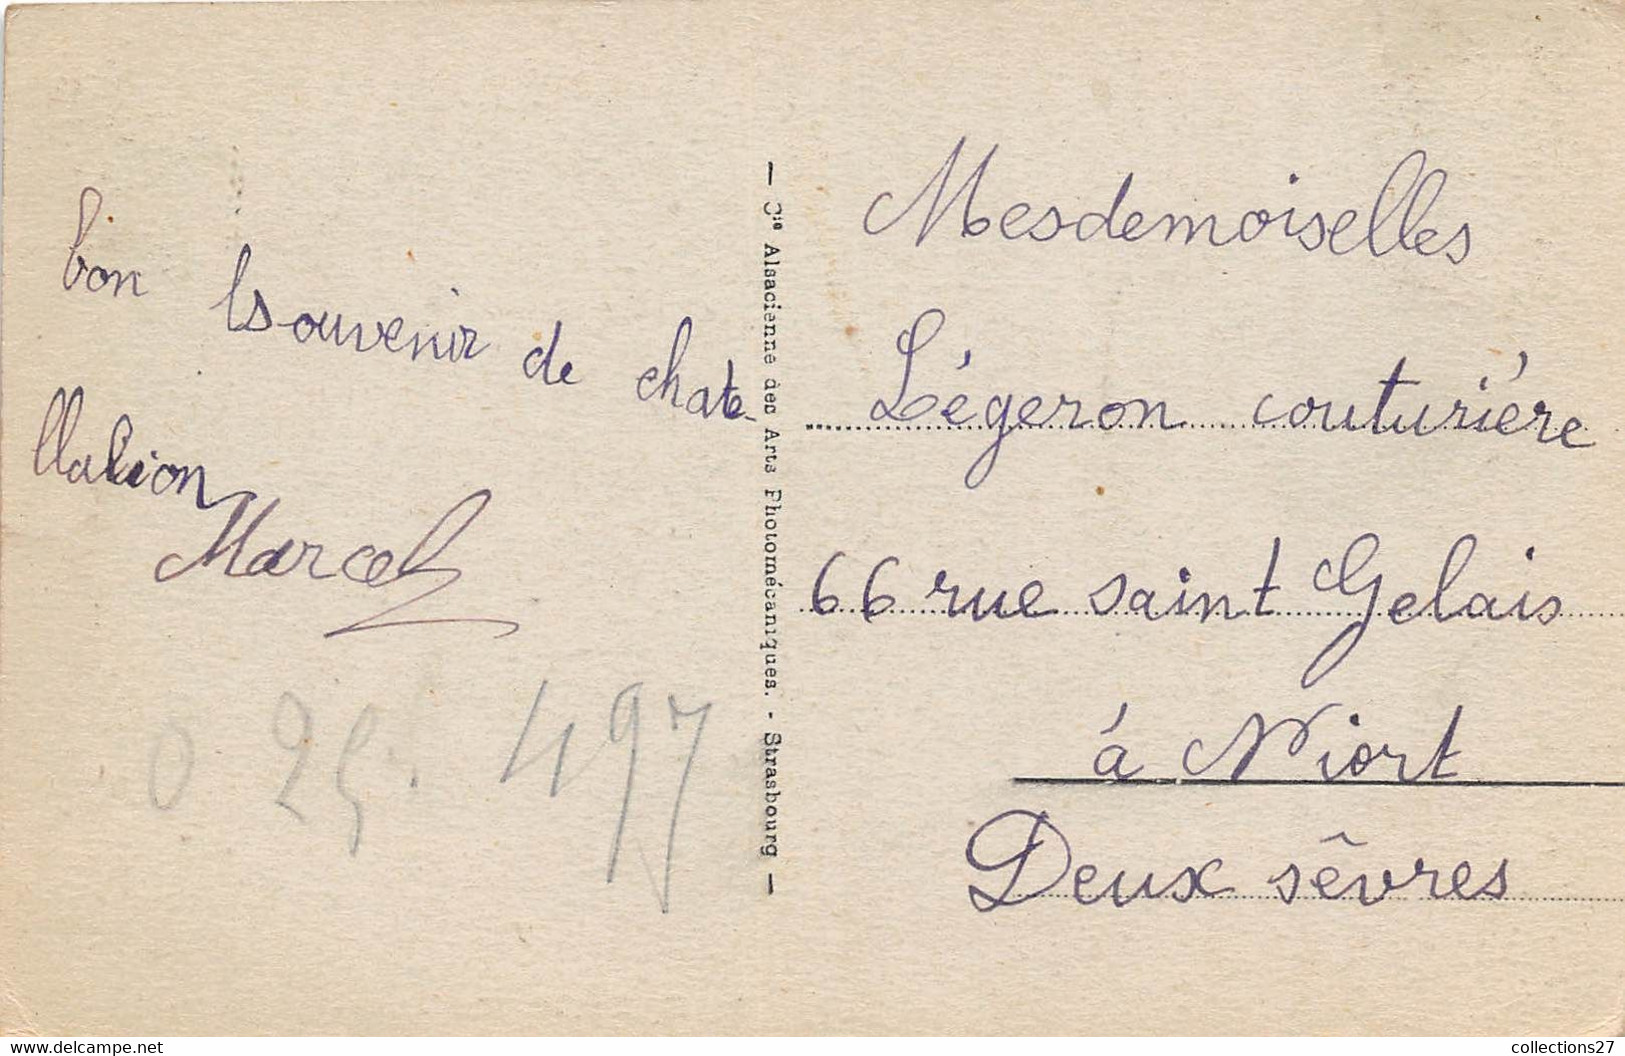 bon souvenir de chate-
llallion
Marcel
0 25. 497
— Cie Alsacienne des Arts Photomécaniques. - Strasbourg —
Mesdemoiselles
Légeron couturiére
66 rue saint Gelais
á Niort
Deux sêvres
delcampe.net
collections27